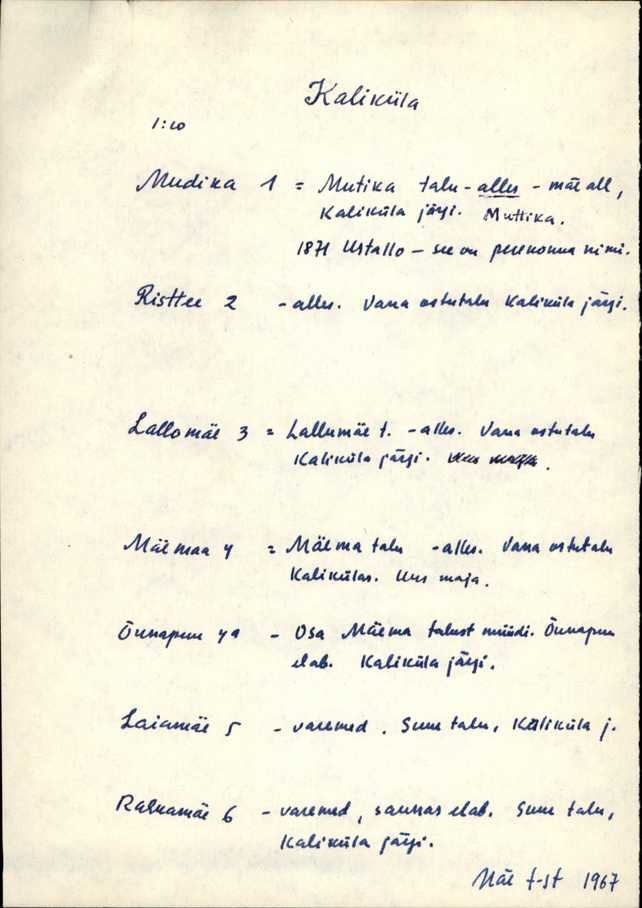 Kaliküla
1:10
Mudika 1 = Mutika talu - alles - mäe all,
Kaliküla järgi. Muttika.
1871 Ustallo - see on perekonna nimi.
Risttee 2 - alles. Vana ostutalu Kaliküla järgi.
Lallomäe 3 = Lallumäe t. - alles. Vana ostutalu
Kaliküla järgi.
Mäemaa 4 = Mäema talu - alles. Vana ostutalu
Kalikülas. Uus maja.
Õunapuu 4a - Osa Mäema talust müüdi. Õunapuu
elab. Kaliküla järgi.
Laiamäe 5 - varemed. Suur talu, Kaliküla j.
6 - varemed, saunas elab. Suur talu,
Kaliküla järgi.
1967